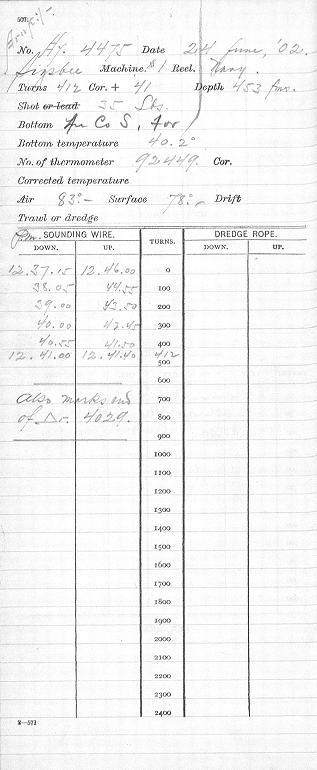 No. Hy. 4475 Date 24 June, '02.
Sigsbee Machine. #1 Reel. Navy.
Turns 412 Cor. + 41 Depth 453 fms.
Shot or lead 35 Lbs.
Bottom fne Co S, For
Bottom temperature 40.2°
No. of thermometer 92449. Cor.
Corrected temperature
Air 83°.- Surface 78°.- Drift
Trawl or dredge
P.m. SOUNDING WIRE. TURNS. DREDGE ROPE.
DOWN. UP. DOWN. UP.
12.37.15 12.46.00 0
38.05 44.55 100
39.00 43.50 200
40.00 42.45 300
40.55 41.50 400
12.41.00 12.41.40 412
500
600
Also marks end 700
of Dr. 4029. 800
900
1000
1100
1200
1300
1400
1500
1600
1700
1800
1900
2000
2100
2200
2300
2400
2—571